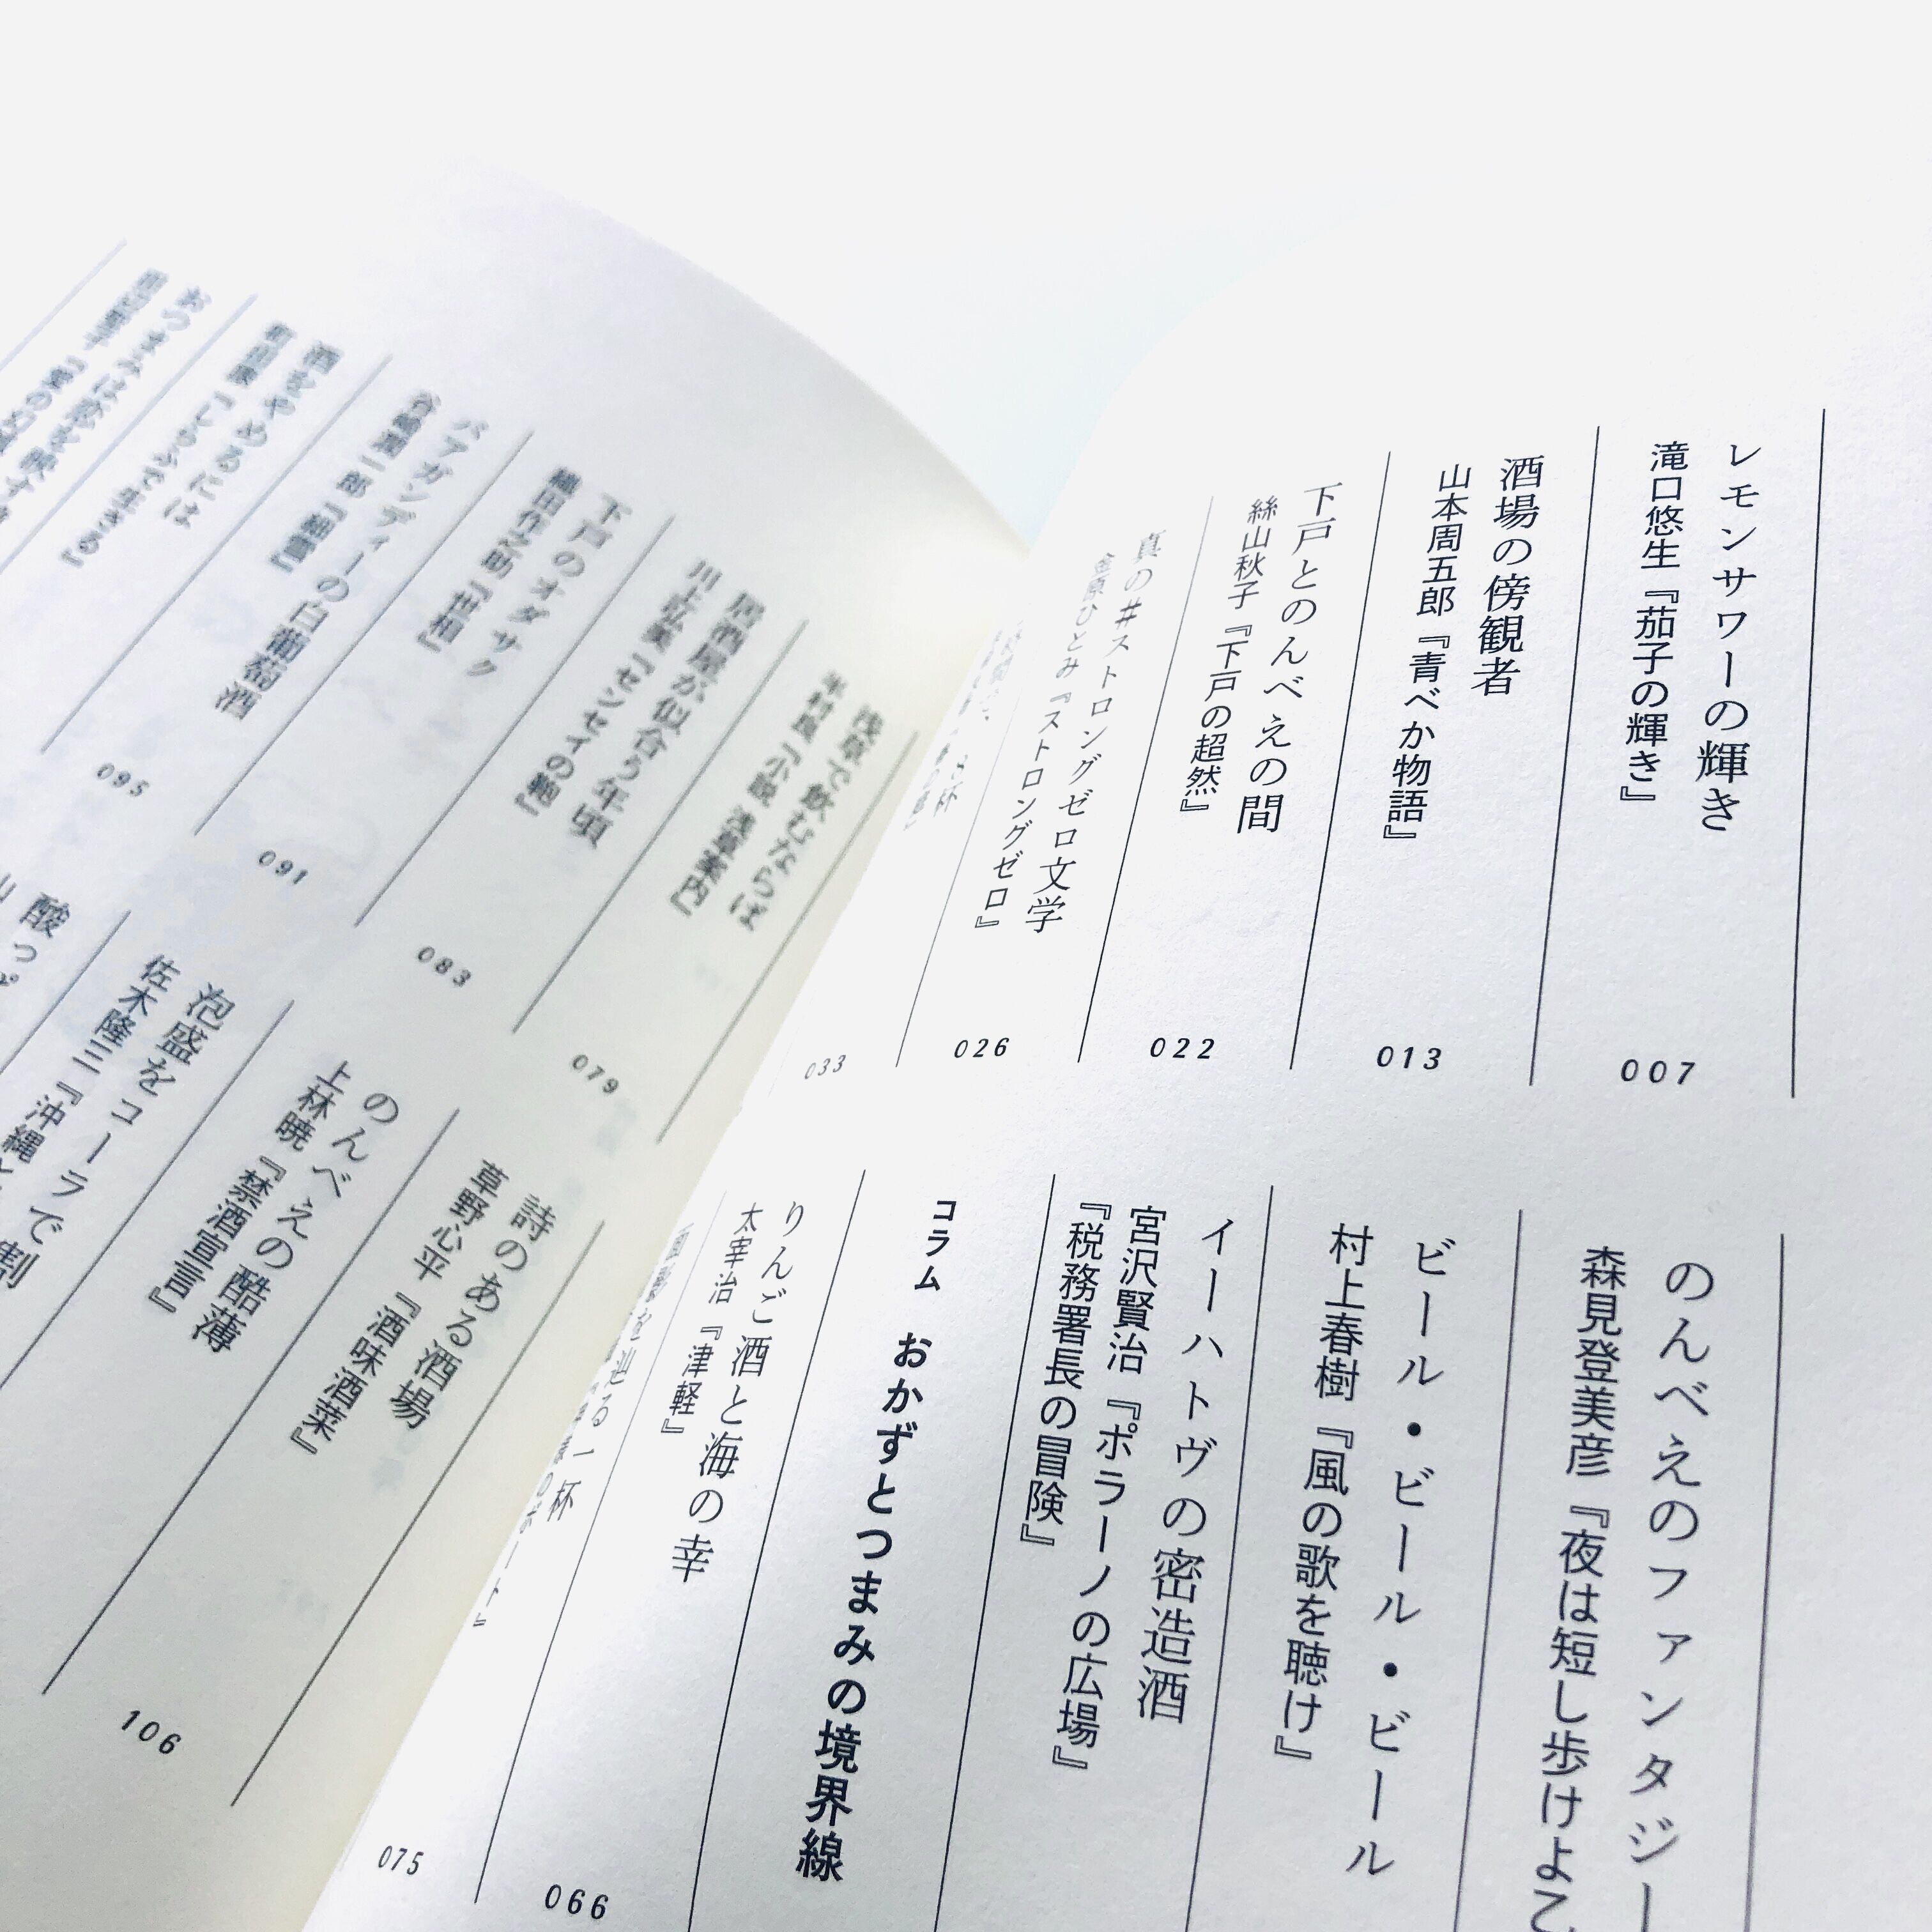 レモンサワーの輝き
滝口悠生『茄子の輝き』
007
酒場の傍観者
山本周五郎『青べか物語』
013
下戸とのんべえの間
絲山秋子『下戸の超然』
022
真の井ストロングゼロ文学
金原ひとみ『ストロングゼロ』
026
033
のんべえのファンタジー
森見登美彦『夜は短し歩けよ乙
ビール・ビール・ビール
村上春樹『風の歌を聴け』
イーハトヴの密造酒
宮沢賢治『ポラーノの広場』
『税務署長の冒険』
コラム おかずとつまみの境界線
りんご酒と海の幸
太宰治『津軽』
066
を辿る一杯
075
浅草で飲むならば
半村良『小説 浅草案内』
居酒屋が似合う年頃
川上弘美『センセイの鞄』
079
下戸のオダサク
織田作之助『世相』
083
バアガンディーの白葡萄酒
谷崎潤一郎『細雪』
091
酒をやめるには
町田康『しらふで生きる』
095
おつまみは欲を映す
詩のある酒場
草野心平『酒味酒菜』
のんべえの酷薄
上林暁『禁酒宣言』
106
泡盛をコーラで割
佐木隆三『沖縄と
酸っぱ